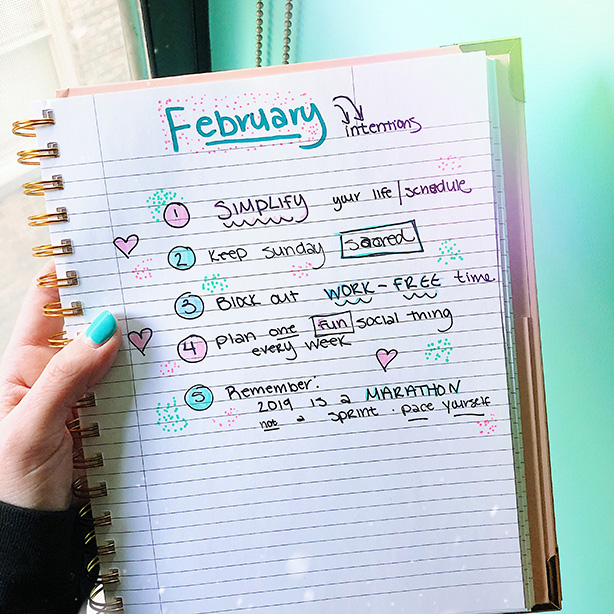 February intentions
1 SIMPLIFY your life / schedule
2 Keep sunday sacred
3 Block out WORK-FREE time
4 Plan one fun social thing
every week
5 Remember:
2019 is a MARATHON
not a sprint . pace yourself